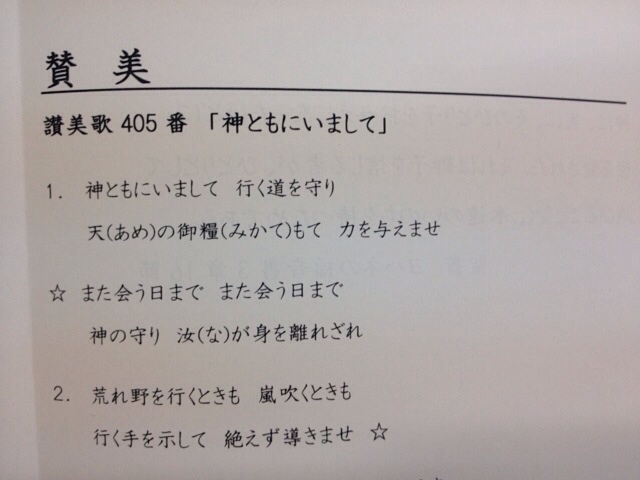 賛 美
讃美歌 405 番 「神ともにいまして」
1. 神ともにいまして 行く道を守り
天(あめ)の御糧(みかて)もて 力を与えませ
☆ また会う日まで また会う日まで
神の守り 汝(な)が身を離れざれ
2. 荒れ野を行くときも 嵐吹くときも
行く手を示して 絶えず導きませ ☆